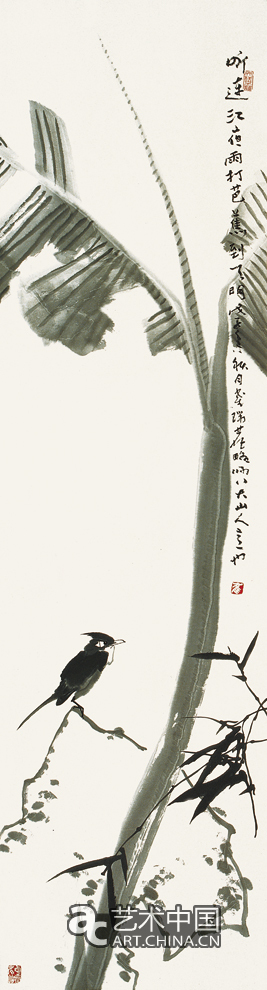 听連江夜雨打芭蕉到天明秋月略師八大山人意也
艺术中国
ART.CHINA.CN